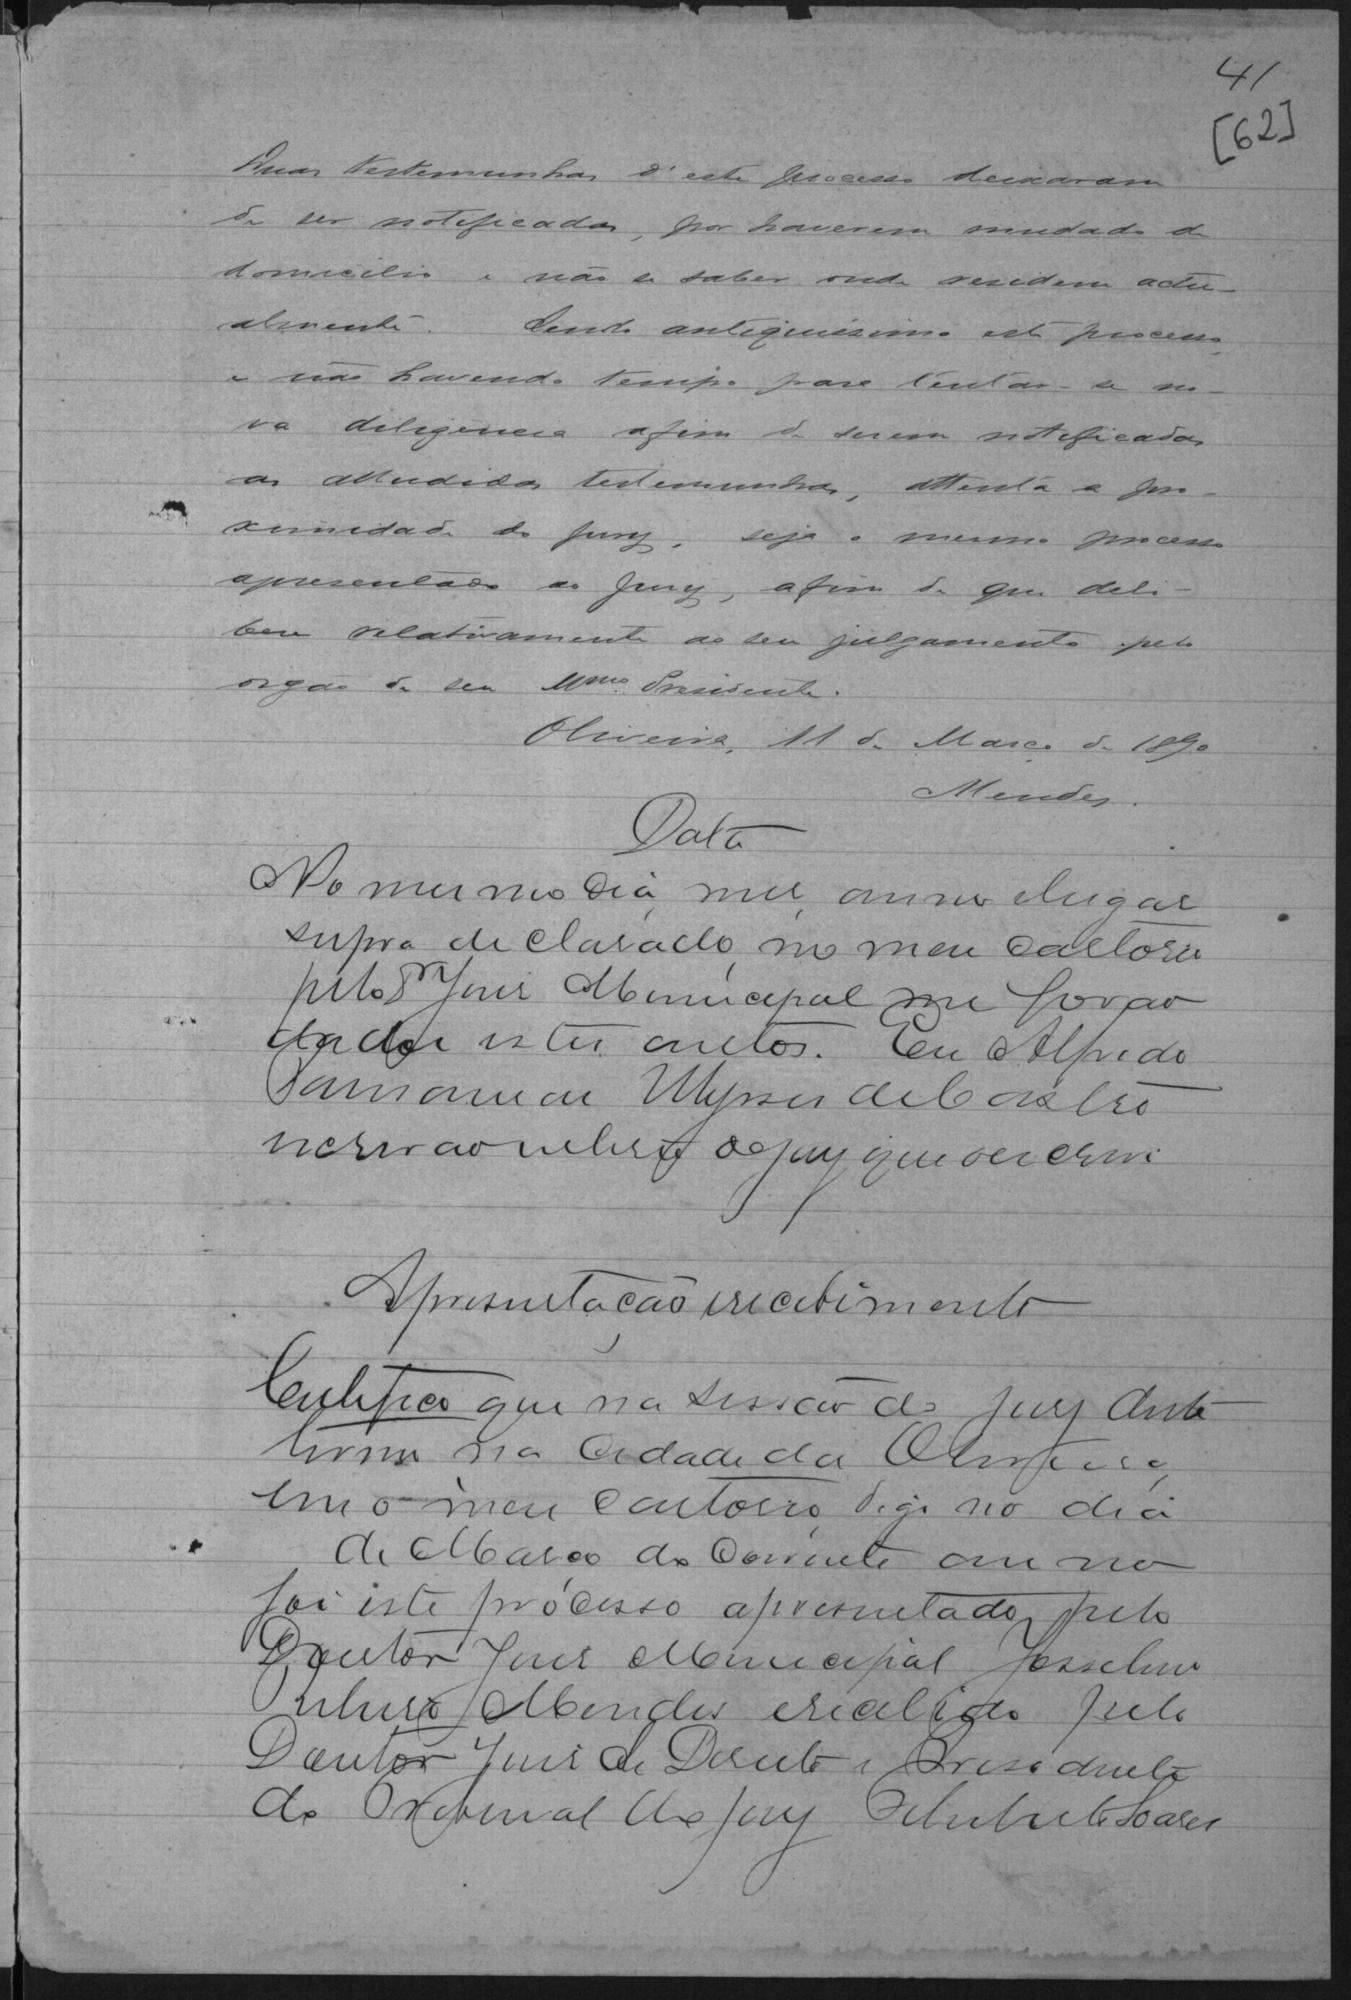 41
[62]
Duas testemunhas d'este processo deixaram
de ser notificadas, por haverem mudado de
domicilio e não se saber onde residem actu-
almente. Sendo antiquissimo este processo,
e não havendo tempo para tentar-se no-
va diligencia afim de serem notificadas
as alludidas testemunhas, attenta a pro-
ximidade do jury, seja o mesmo processo
apresentado ao jury, afim de que deli-
bere relativamente ao seu julgamento pelo
orgão de seu Mmo. Presidente.
Oliveira, 11 de Março de 1890
Mendes.
Data
No mesmo dia, mez, anno e lugar
supra declarado, no meu cartorio
pelo Sr Juiz Municipal me forão
dados estes autos. Eu Alfredo
Ulysses de Castro
escrivão do jury que o escrevi
Apresentação e recebimento
Certifico que na sessão do jury
na Cidade da Oliveira,
em o meu cartorio, digo no dia
de Março do Corrente anno
foi este processo apresentado pelo
Doutor Juiz Municipal Josselino
Ribeiro Mendes e recebido pelo
Doutor Juiz de Direito e Presidente
do Tribunal do jury Soares